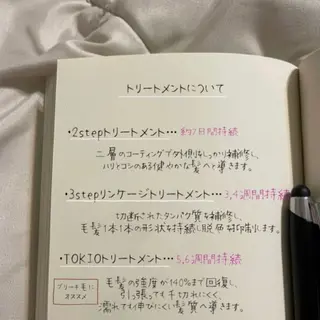 トリートメントについて
・2stepトリートメント…約7日間持続
二層のコーティングで外側をしっかり補修し、
ハリとコシのある健やかな髪へと導きます。
・3stepリンケージトリートメント…3,4週間持続
切断されたタンパク質を補修し、
毛髪1本1本の形状を持続し脱色を抑制ります。
・TOKIOトリートメント…5,6週間持続
ブリーチ毛に
オススメ
毛髪の強度が140%まで回復し、
引っ張っても千切れにくく、
濡れても伸びにくい髪質へ導きます。